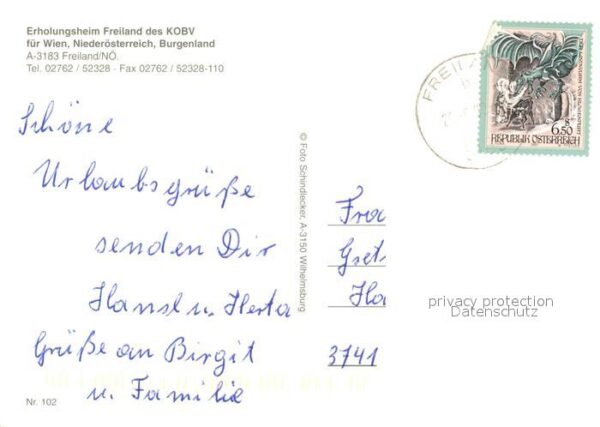 Erholungsheim Freiland des KOBV
für Wien, Niederösterreich, Burgenland
A-3183 Freiland/NÖ.
Tel. 02762 / 52328 - Fax 02762 / 52328-110
Schöne
Urlaubsgrüße
senden Dir
Hansl u. Herta
Grüße an Birgit
u. Familie
Nr. 102
© Foto Schindlecker, A-3150 Wilhelmsburg
FREIL
DER LINDWURM VON KLAGENFURT
S
6.50
REPUBLIK ÖSTERREICH
Fra
Gret
Ha
3741
privacy protection
Datenschutz